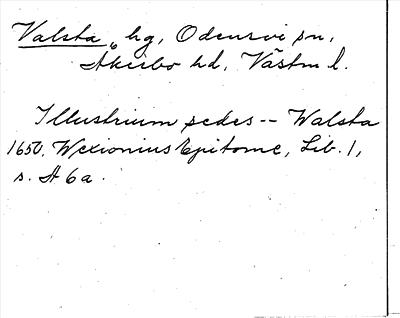 Valsta, hg, Odensvi sn,
Åkerbo hd, Västm l.
Illustrium sedes -- Walsta
1650. Wexionius Epitome, Lib. 1,
s. A 6a.